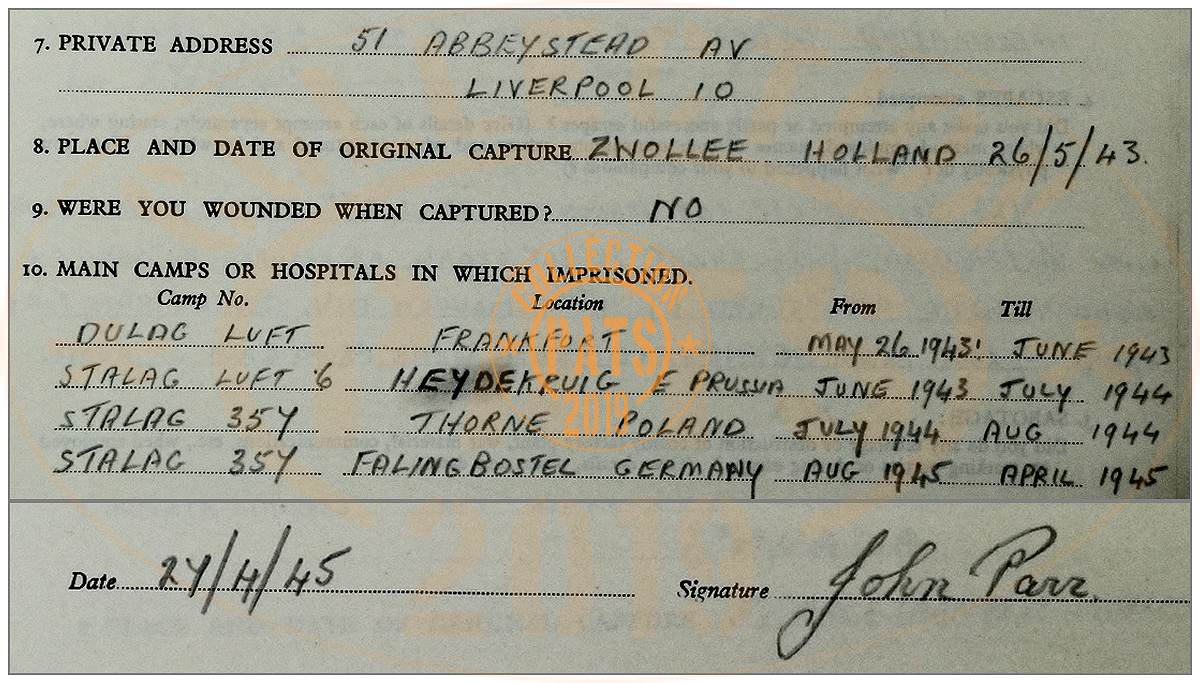 7. PRIVATE ADDRESS 51 ABBEYSTEAD AV
LIVERPOOL 10
8. PLACE AND DATE OF ORIGINAL CAPTURE ZWOLLEE HOLLAND 26/5/43.
9. WERE YOU WOUNDED WHEN CAPTURED? NO
10. MAIN CAMPS OR HOSPITALS IN WHICH IMPRISONED.
Camp No. Location From Till
DULAG LUFT FRANKFORT MAY 26 1943 JUNE 1943
STALAG LUFT 6 HEYDEKRUIG E PRUSSIA JUNE 1943 JULY 1944
STALAG 357 THORNE POLAND JULY 1944 AUG 1944
STALAG 357 FALINGBOSTEL GERMANY AUG 1945 APRIL 1945
COLLECTION
PATS
2019
Date 27/4/45 Signature John Parr.